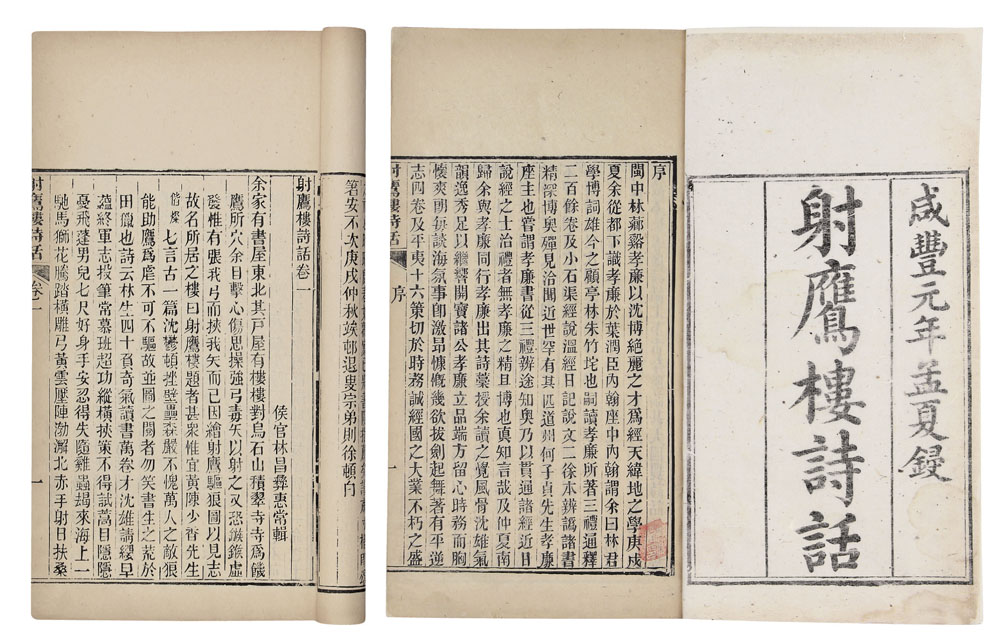 咸豐元年孟夏鋟
射鷹樓詩話
序
閩中林薌谿孝廉以沈博絶麗之才爲經天緯地之學庚戍
夏余從都下識孝廉於葉潤臣内翰座中内翰謂余曰林君
學博詞雄今之顧亭林朱竹垞也嗣讀孝廉所著三禮通釋
二百餘卷及小石渠經說溫經日記說文二徐本辨譌諸書
精深博奥殫見洽聞近世罕有其匹道州何子貞先生孝廉
座主也嘗謂孝廉書從三禮辨途知奥乃以貫通諸經近日
說經之士治禮者無孝廉之精且博也真知言哉及仲夏南
歸余與孝廉同行孝廉出其詩藁授余讀之覺風骨沈雄氣
韻逸秀足以繼響開寶諸公孝廉立品端方留心時務而胸
懷爽朗每談海氛事卽激昂慷慨幾欲拔劍起舞著有平逆
志四卷及平夷十六策切於時務誠經國之大業不朽之盛
射鷹樓詩話
序
一
箸安不次庚戌仲秋竢邨退叟宗弟則徐頓白
射鷹樓詩話卷一
侯官林昌彝惠常輯
余家有書屋東北其戸屋有樓樓對烏石山積翠寺寺爲饑
鷹所穴余目擊心傷思操強弓毒矢以射之又恐鏃鎩虛
發惟有張我弓而挾我矢而已因繪射鷹驅狼圖以見志
故名所居之樓曰射鷹樓題者甚衆惟宜黃陳少香先生
偕燦
七言古一篇沈鬱頓挫壁壘森嚴不愧萬人之敵狼
能助鷹爲虐不可不驅故並圖之閱者勿笑書生之荒於
田獵也詩云林生四十負奇氣讀書萬卷才沈雄請纓早
蘊終軍志投筆常慕班超功縱橫挾策不得試蒿目隱隱
憂飛蓬男兒七尺好身手安忍得失隨雞蟲朅來海上一
馳馬獅花騰踏橫雕弓黃雲壓陣渤澥北赤手射日扶桑
射鷹樓詩話
卷一
一